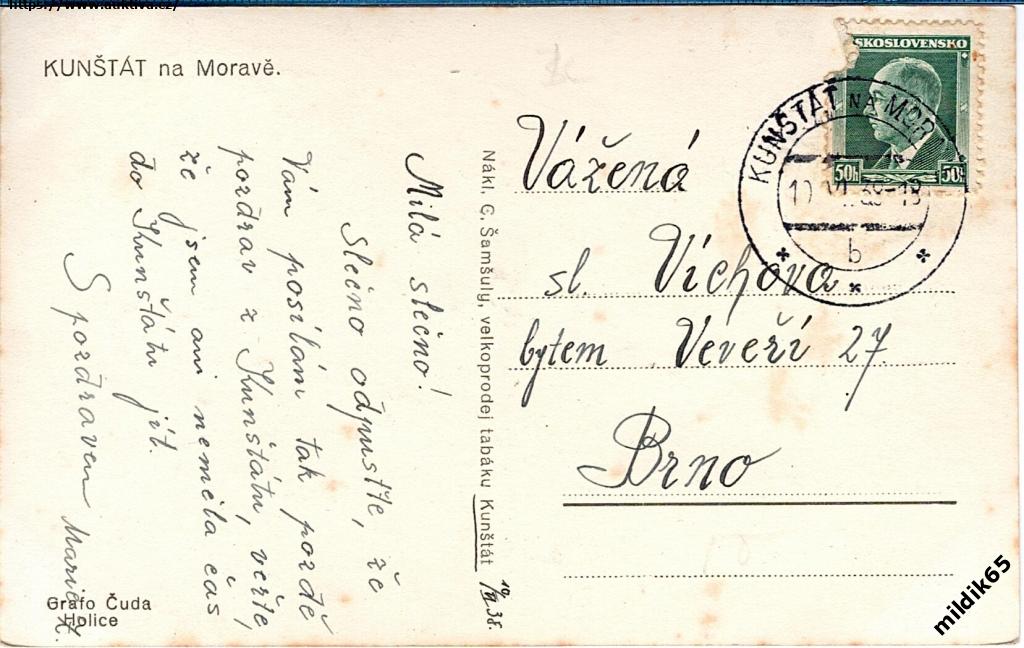 https://www.auktiva.cz/
KUNŠTÁT na Moravě.
Milá slečno!
Slečno odpusťte, že
Vám posílám tak pozdě
pozdrav z Kunštátu, veřte,
že jsem ani neměla čas
do Kunštátu jít.
S pozdravem Marie
Grafo Čuda
Holice
Nákl. C. Šamšuly, velkoprodej tabáku Kunštát
19/VI 38.
ČESKOSLOVENSKO
50h 50h
KUNŠTÁT NA MOR
VI. 38-18
b
Vážená
sl. Víchova
bytem Veveří 27
Brno
mildik65